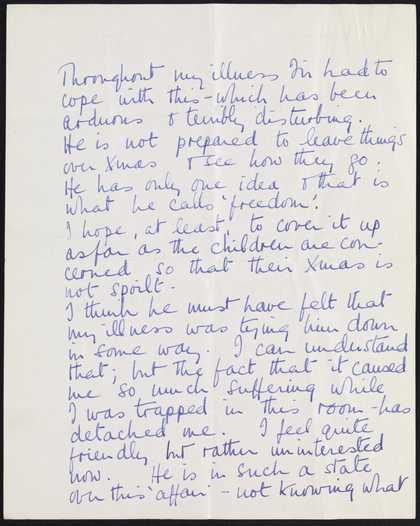 Throughout my illness I've had to
cope with this - which has been
arduous & terribly disturbing.
He is not prepared to leave things
over Xmas & see how they go.
He has only one idea & that is
what he calls 'freedom'.
I hope, at least, to cover it up
as far as the children are con-
cerned so that their Xmas is
not spoilt.
I think he must have felt that
my illness was tying him down
in some way. I can understand
that; but the fact that it caused
me so much suffering while
I was trapped in this room - has
detached me. I feel quite
friendly but rather uninterested
now. He is in such a state
over this 'affair' - not knowing what